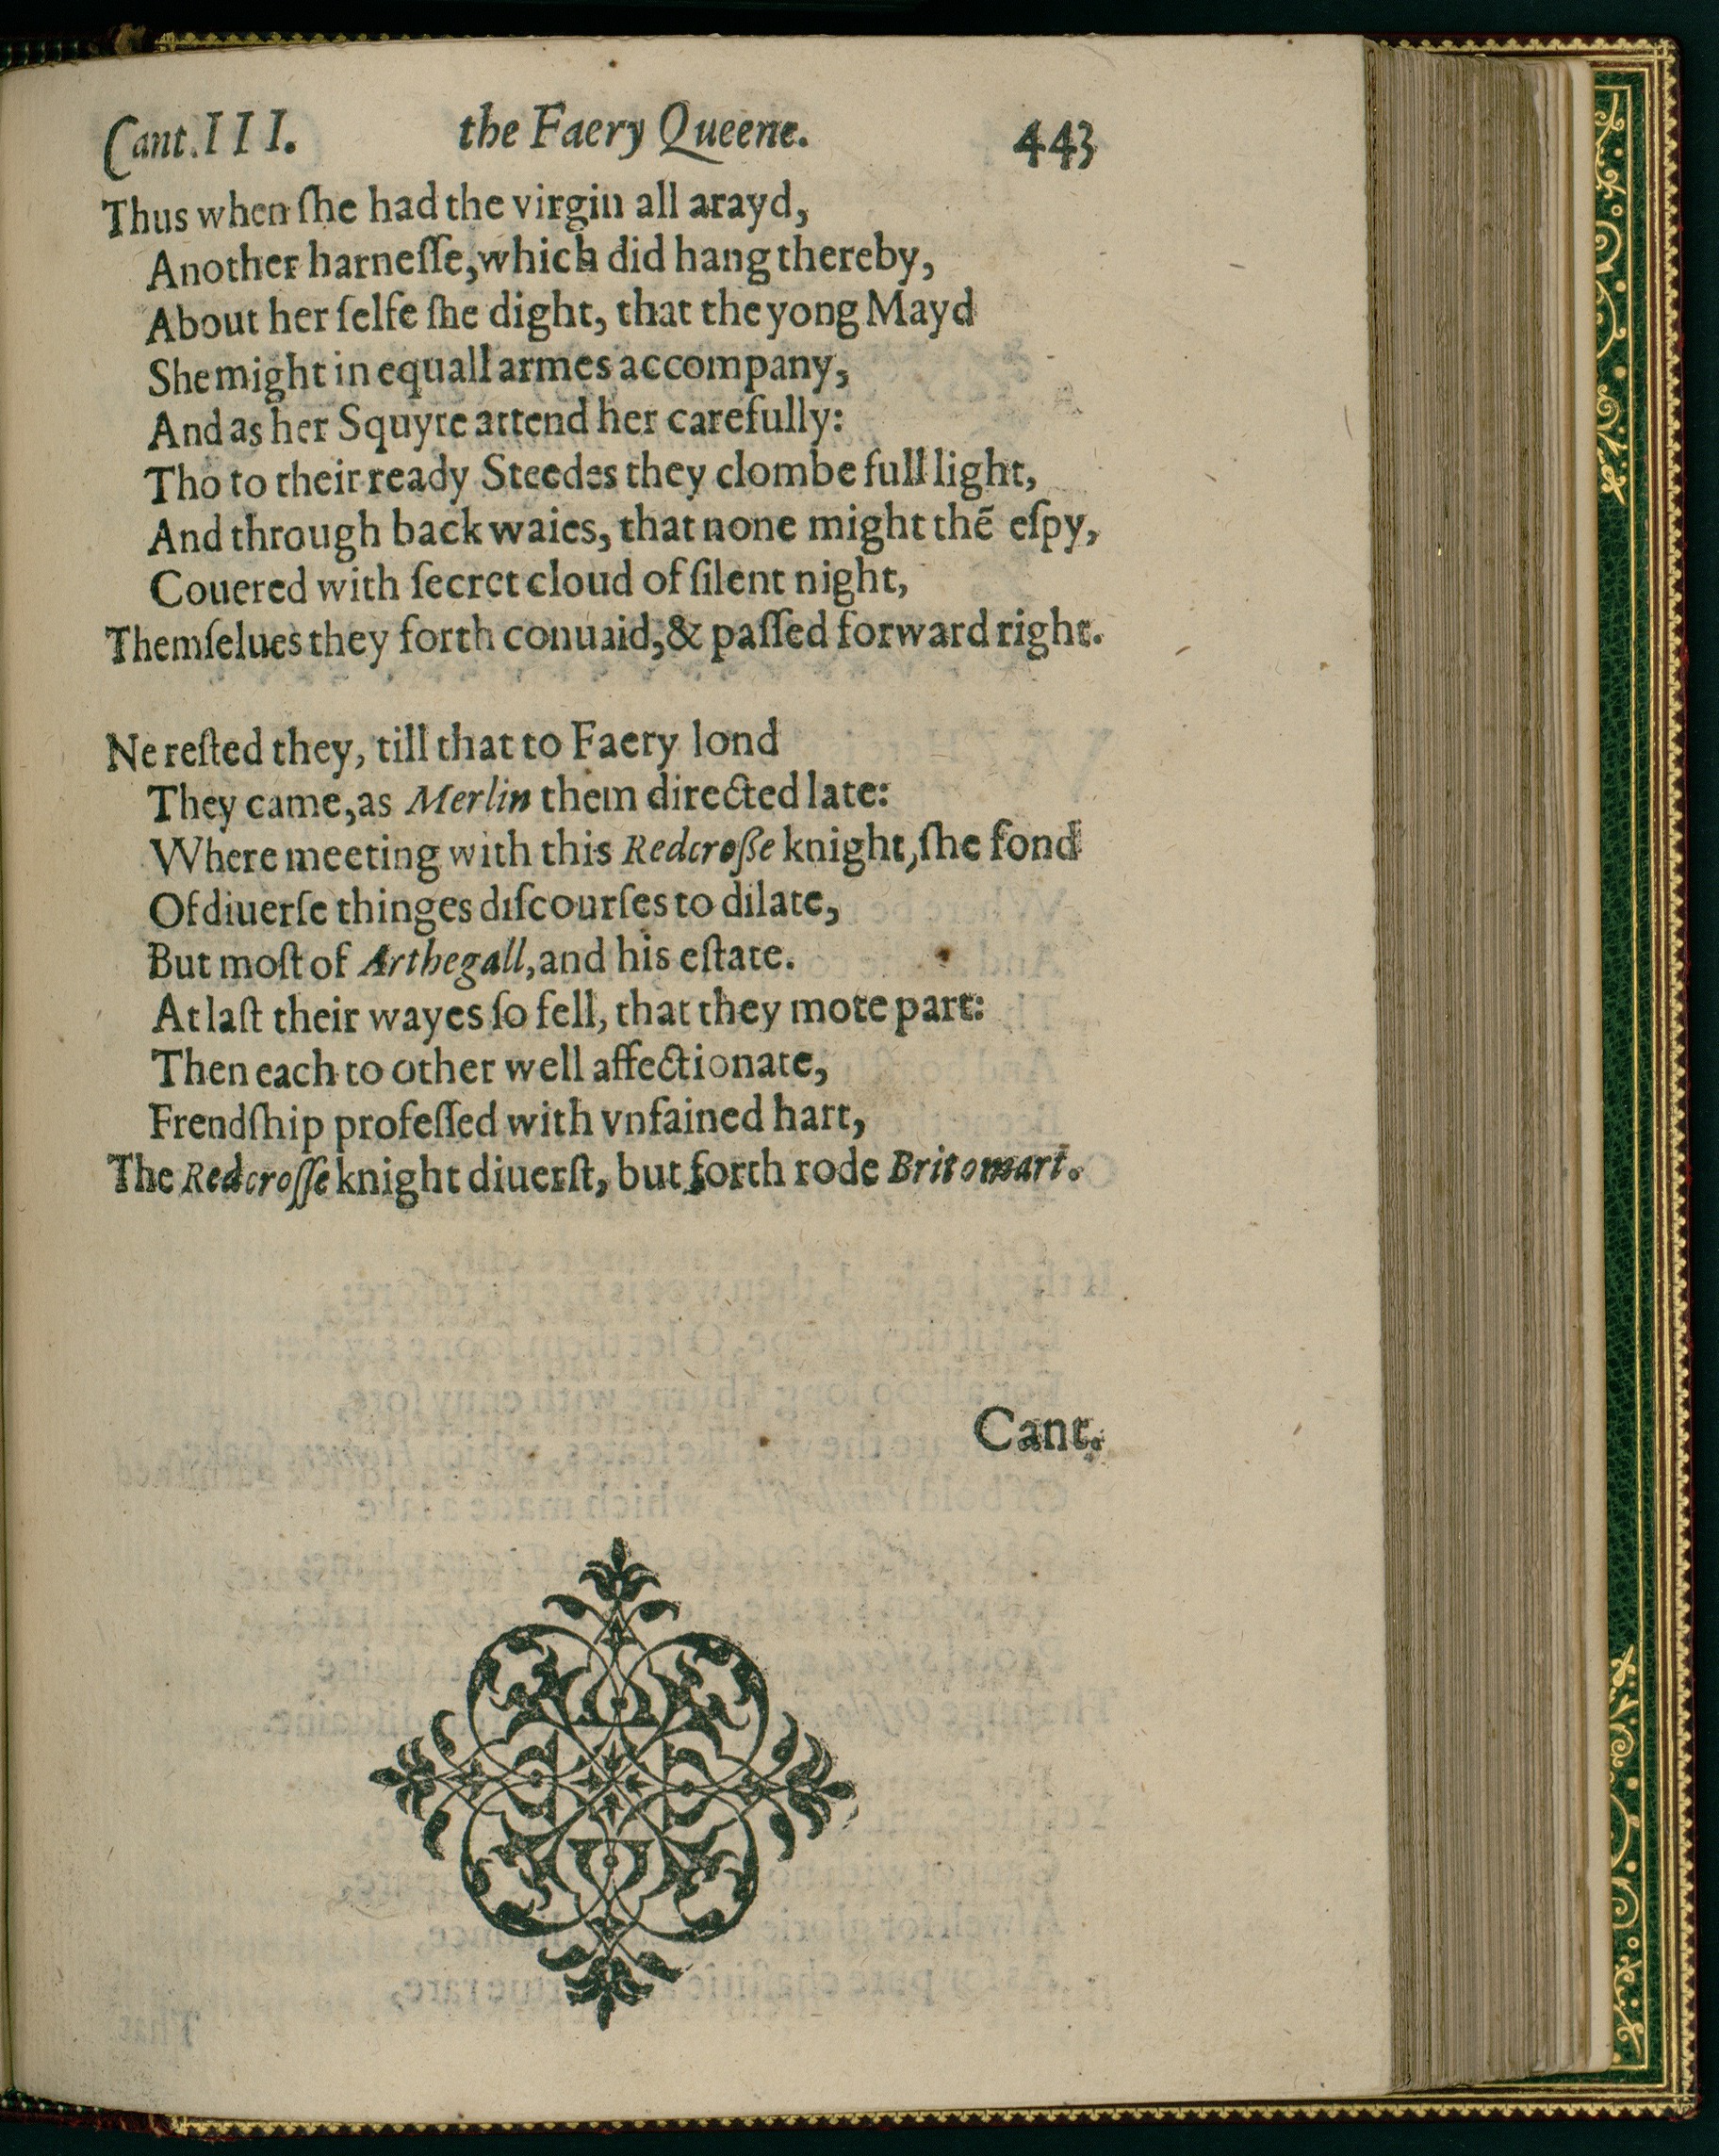 Cant.III. the Faery Queene. 443
Thus when ſhe had the virgin all arayd,
Another harneſſe, which did hang thereby,
About her ſelfe ſhe dight, that the yong Mayd
She might in equall armes accompany,
And as her Squyre attend her carefully:
Tho to their ready Steedes they clombe full light,
And through back waies, that none might thē eſpy,
Couered with ſecret cloud of ſilent night,
Themſelues they forth conuaid, & paſſed forward right.
Ne reſted they, till that to Faery lond
They came, as Merlin them directed late:
Where meeting with this Redcroſſe knight, ſhe fond
Of diuerſe thinges diſcourſes to dilate,
But moſt of Arthegall, and his eſtate.
At laſt their wayes ſo fell, that they mote part:
Then each to other well affectionate,
Frendſhip profeſſed with vnfained hart,
The Redcroſſe knight diuerſt, but forth rode Britomart.
Cant.